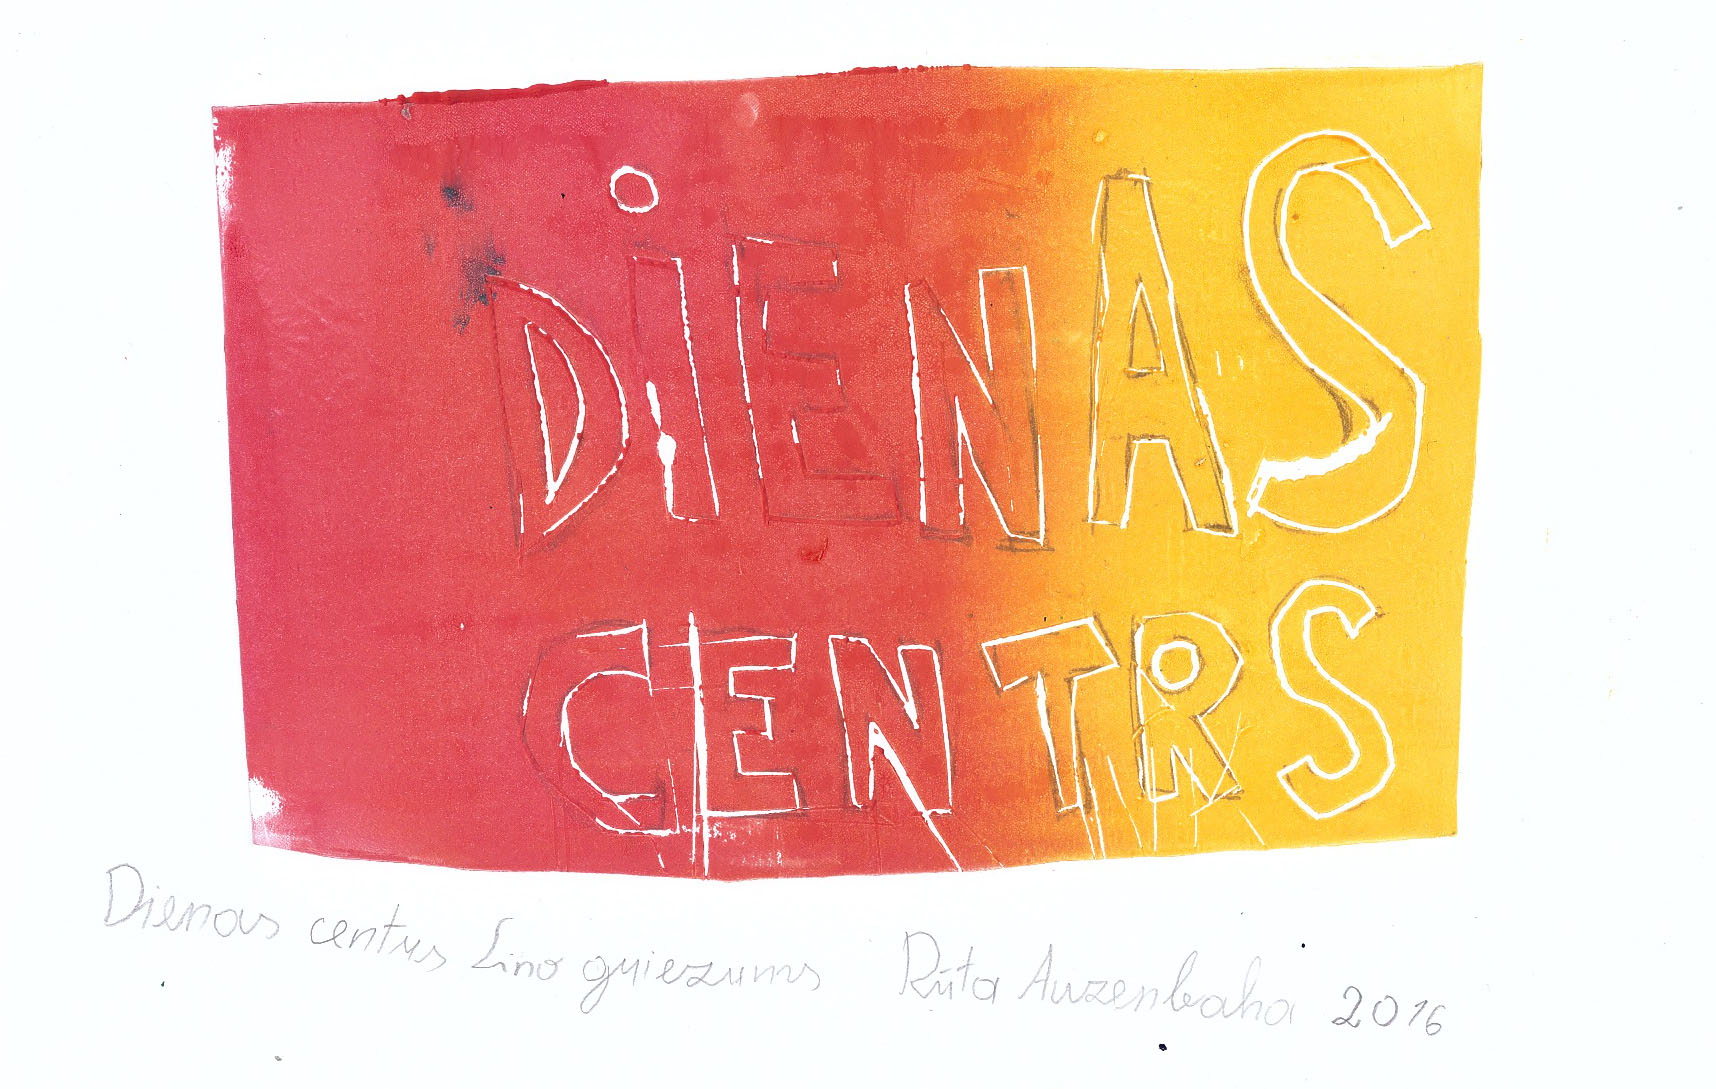 DiENAS
CENTRS
Dienas centrs Lino griezums Rūta Auzenbaha 2016